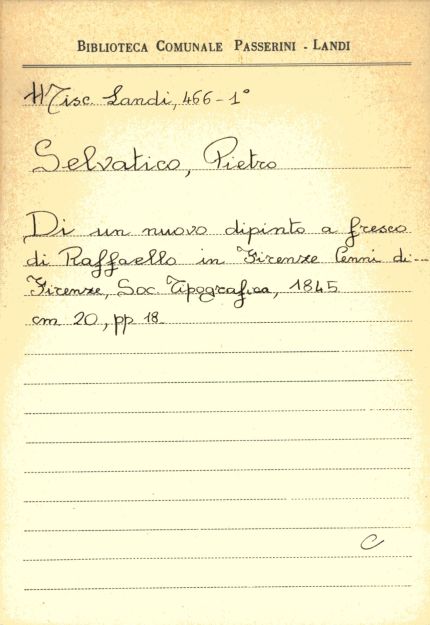 BIBLIOTECA COMUNALE PASSERINI - LANDI
Misc. Landi, 466-1°
Selvatico, Pietro
Di un nuovo dipinto a fresco
di Raffaello in Firenze Cenni di---
Firenze, Soc. Tipografica, 1845
cm 20, pp 18.
C